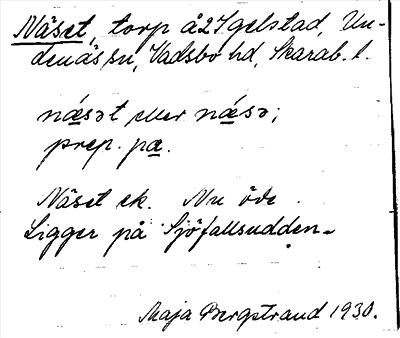 Näset, torp å 2 Igelstad, Un-
denäs sn, Vadsbo hd, Skarab. l.
næ̀sət eller næ̀sə;
prep. pa.
Näset ek. Nu öde.
Ligger på Sjöfallsudden.
Maja Bergstrand 1930.